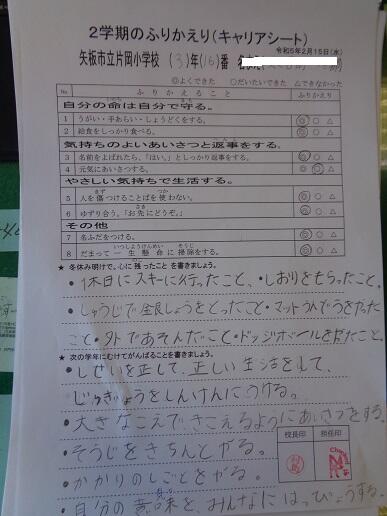 2学期のふりかえり(キャリアシート)
令和5年2月15日(水)
矢板市立片岡小学校 (3)年(16)番
◎よくできた ○だいたいできた △できなかった
No ふりかえること ふりかえり
自分の命は自分で守る。
1 うがい・手あらい・しょうどくをする。 ◎ ○ △
2 給食をしっかり食べる。 ◎ ○ △
気持ちのよいあいさつと返事をする。
3 名前をよばれたら、「はい。」としっかり返事をする。 ◎ ○ △
4 元気にあいさつする。 ◎ ○ △
やさしい気持ちで生活する。
5 人を傷つけることばを使わない。 ◎ ○ △
6 ゆずり合う。「お先にどうぞ。」 ◎ ○ △
その他
7 名ふだをつける。 ◎ ○ △
8 だまって一生懸命に掃除をする。 ◎ ○ △
★ 冬休み明けで、心に残ったことを書きましょう。
・休日にスキーに行ったこと、・しおりをもらったこと。
・しゅうじで金しょうをとったこと・マットうんどうをがんばった
こと・外であそんだこと・ドッジボールをしたこと。
★ 次の学年にむけてがんばることを書きましょう。
・しせいを正して、正しい生活をして、
じゅぎょうをしんけんにうける。
・大きなこえで、きこえるようにあいさつをする。
・そうじをきちんとやる。
・かかりのしごとをやる。
・自分の意味を、みんなにはっぴょうする。
校長印 担任印